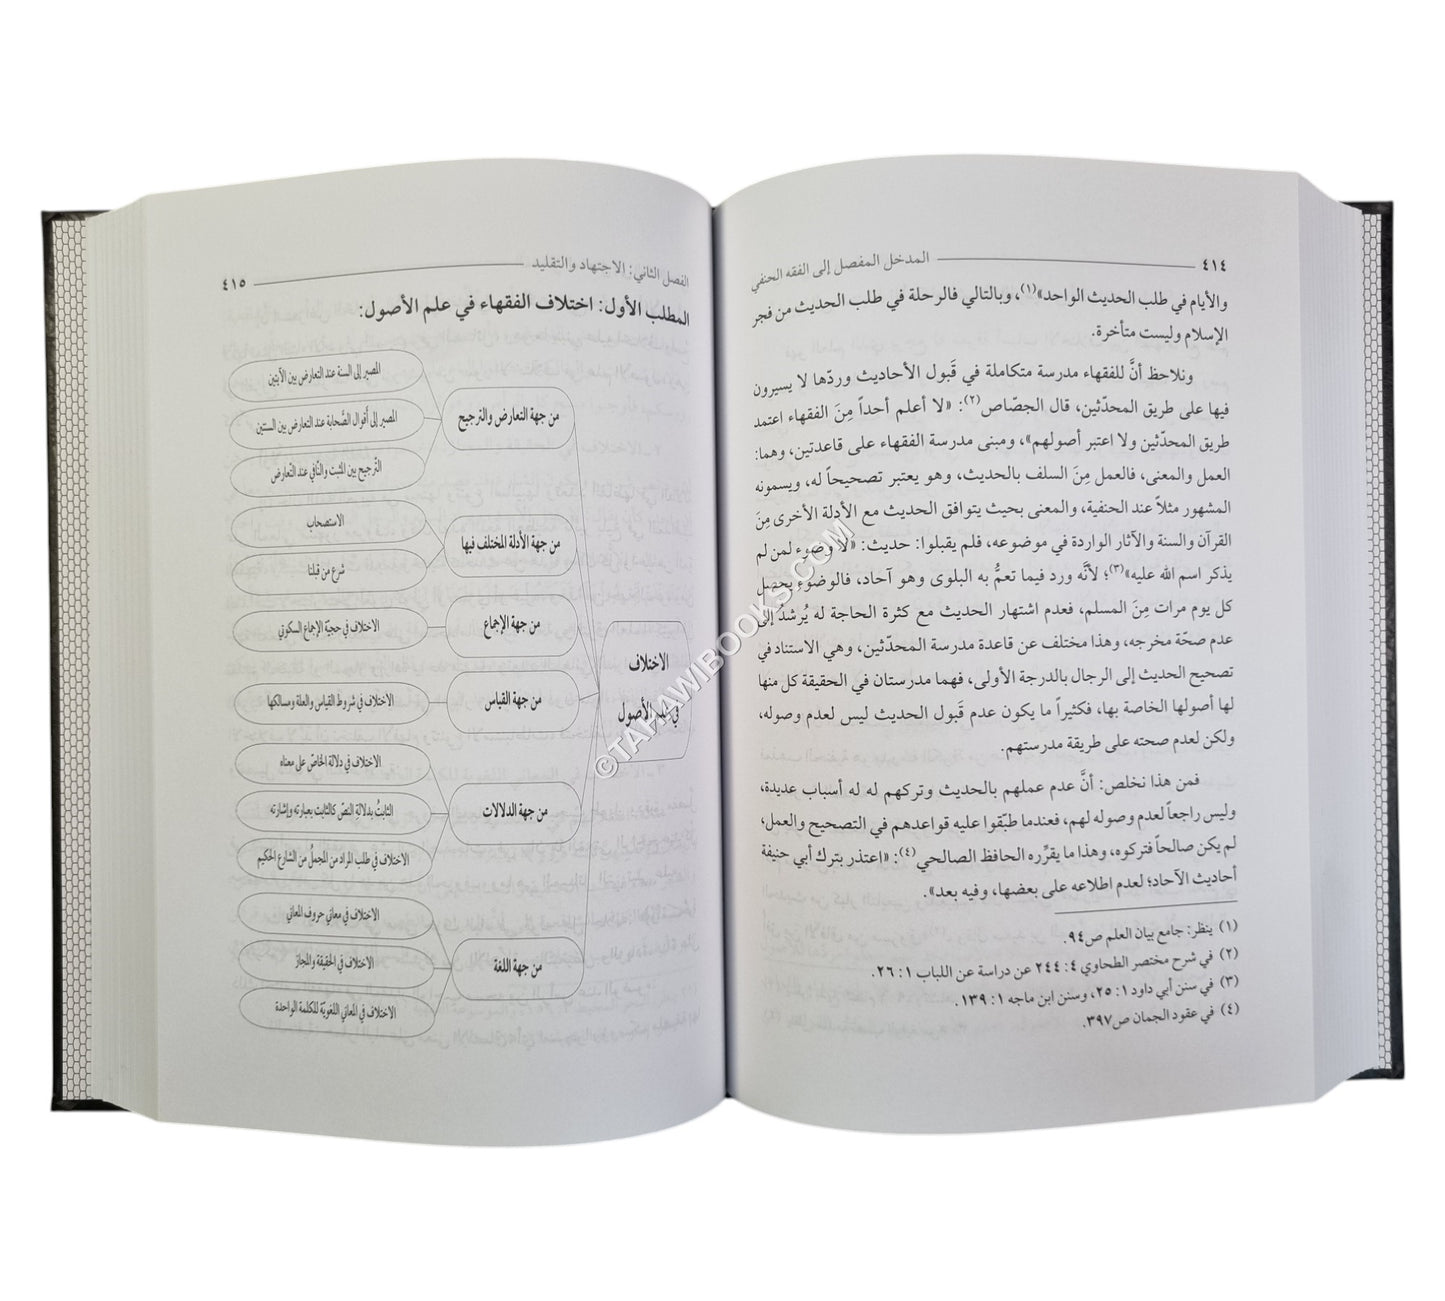 ٤١٤ المدخل المفصل إلى الفقه الحنفي
والأيام في طلب الحديث الواحد»(١)، وبالتالي فالرحلة في طلب الحديث من فجر
الإسلام وليست متأخرة.
ونلاحظ أنَّ للفقهاء مدرسة متكاملة في قَبول الأحاديث وردّها لا يسيرون
فيها على طريق المحدّثين، قال الجصّاص(٢): «لا أعلم أحداً مِنَ الفقهاء اعتمد
طريق المحدّثين ولا اعتبر أصولهم»، ومبنى مدرسة الفقهاء على قاعدتين، وهما:
العمل والمعنى، فالعمل مِنَ السلف بالحديث، وهو يعتبر تصحيحاً له، ويسمونه
المشهور مثلاً عند الحنفية، والمعنى بحيث يتوافق الحديث مع الأدلة الأخرى مِنَ
القرآن والسنة والآثار الواردة في موضوعه، فلم يقبلوا: حديث: «لا وضوء لمن لم
يذكر اسم الله عليه»(٣)؛ لأنَّه ورد فيما تعمُّ به البلوى وهو آحاد، فالوضوء يحصل
كل يوم مرات مِنَ المسلم، فعدم اشتهار الحديث مع كثرة الحاجة له يُرشدُ إلى
عدم صحّة مخرجه، وهذا مختلف عن قاعدة مدرسة المحدّثين، وهي الاستناد في
تصحيح الحديث إلى الرجال بالدرجة الأولى، فهما مدرستان في الحقيقة كل منها
لها أصولها الخاصة بها، فكثيراً ما يكون عدم قَبول الحديث ليس لعدم وصوله،
ولكن لعدم صحته على طريقة مدرستهم.
فمن هذا نخلص: أنَّ عدم عملهم بالحديث وتركهم له له أسباب عديدة،
وليس راجعاً لعدم وصوله لهم، فعندما طبّقوا عليه قواعدهم في التصحيح والعمل،
لم يكن صالحاً فتركوه، وهذا ما يقرِّره الحافظ الصالحي(٤): «اعتذر بترك أبي حنيفة
أحاديث الآحاد؛ لعدم اطلاعه على بعضها، وفيه بعد».
(١) ينظر: جامع بيان العلم ص٩٤.
(٢) في شرح مختصر الطحاوي ٤: ٢٤٤ عن دراسة عن اللباب ١: ٢٦.
(٣) في سنن أبي داود ١: ٢٥، وسنن ابن ماجه ١: ١٣٩.
(٤) في عقود الجمان ص٣٩٧.
الفصل الثاني: الاجتهاد والتقليد ٤١٥
المطلب الأول: اختلاف الفقهاء في علم الأصول:
الاختلاف
في علم الأصول
من جهة التعارض والترجيح
المصير إلى السنة عند التعارض بين الآيتين
المصير إلى أقوال الصَّحابة عند التعارض بين السنتين
التَّرجيح بين المثبت والنَّافي عند التَّعارض
من جهة الأدلة المختلف فيها
الاستصحاب
شرع من قبلنا
من جهة الإجماع
الاختلاف في حجيّة الإجماع السكوتي
من جهة القياس
الاختلاف في شروط القياس والعلة ومسالكها
من جهة الدلالات
الاختلاف في دلالة الخاصّ على معناه
الثابتُ بدلالةِ النصّ كالثابت بعبارته وإشارته
الاختلاف في طلب المراد من المجملُ من الشارع الحكيم
من جهة اللغة
الاختلاف في معاني حروف المعاني
الاختلاف في الحقيقة والمجاز
الاختلاف في المعاني اللغويّة للكلمة الواحدة
©TAHAWIBOOKS.COM